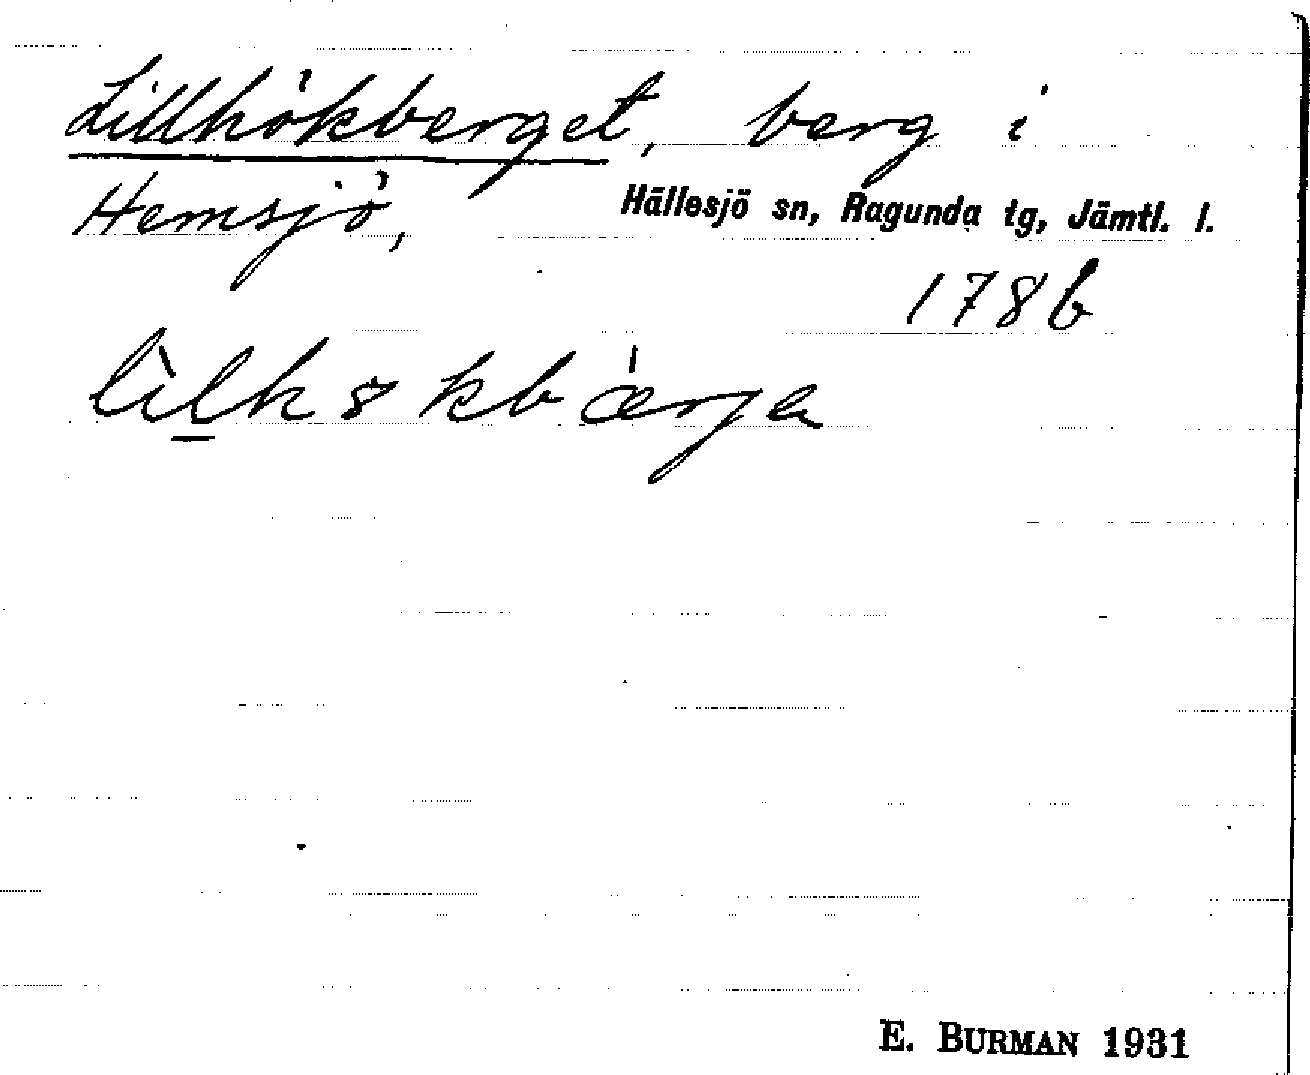 Lillhökberget, berg i
Hemsjö, Hällesjö sn, Ragunda tg, Jämtl. l.
178b
E. BURMAN 1931